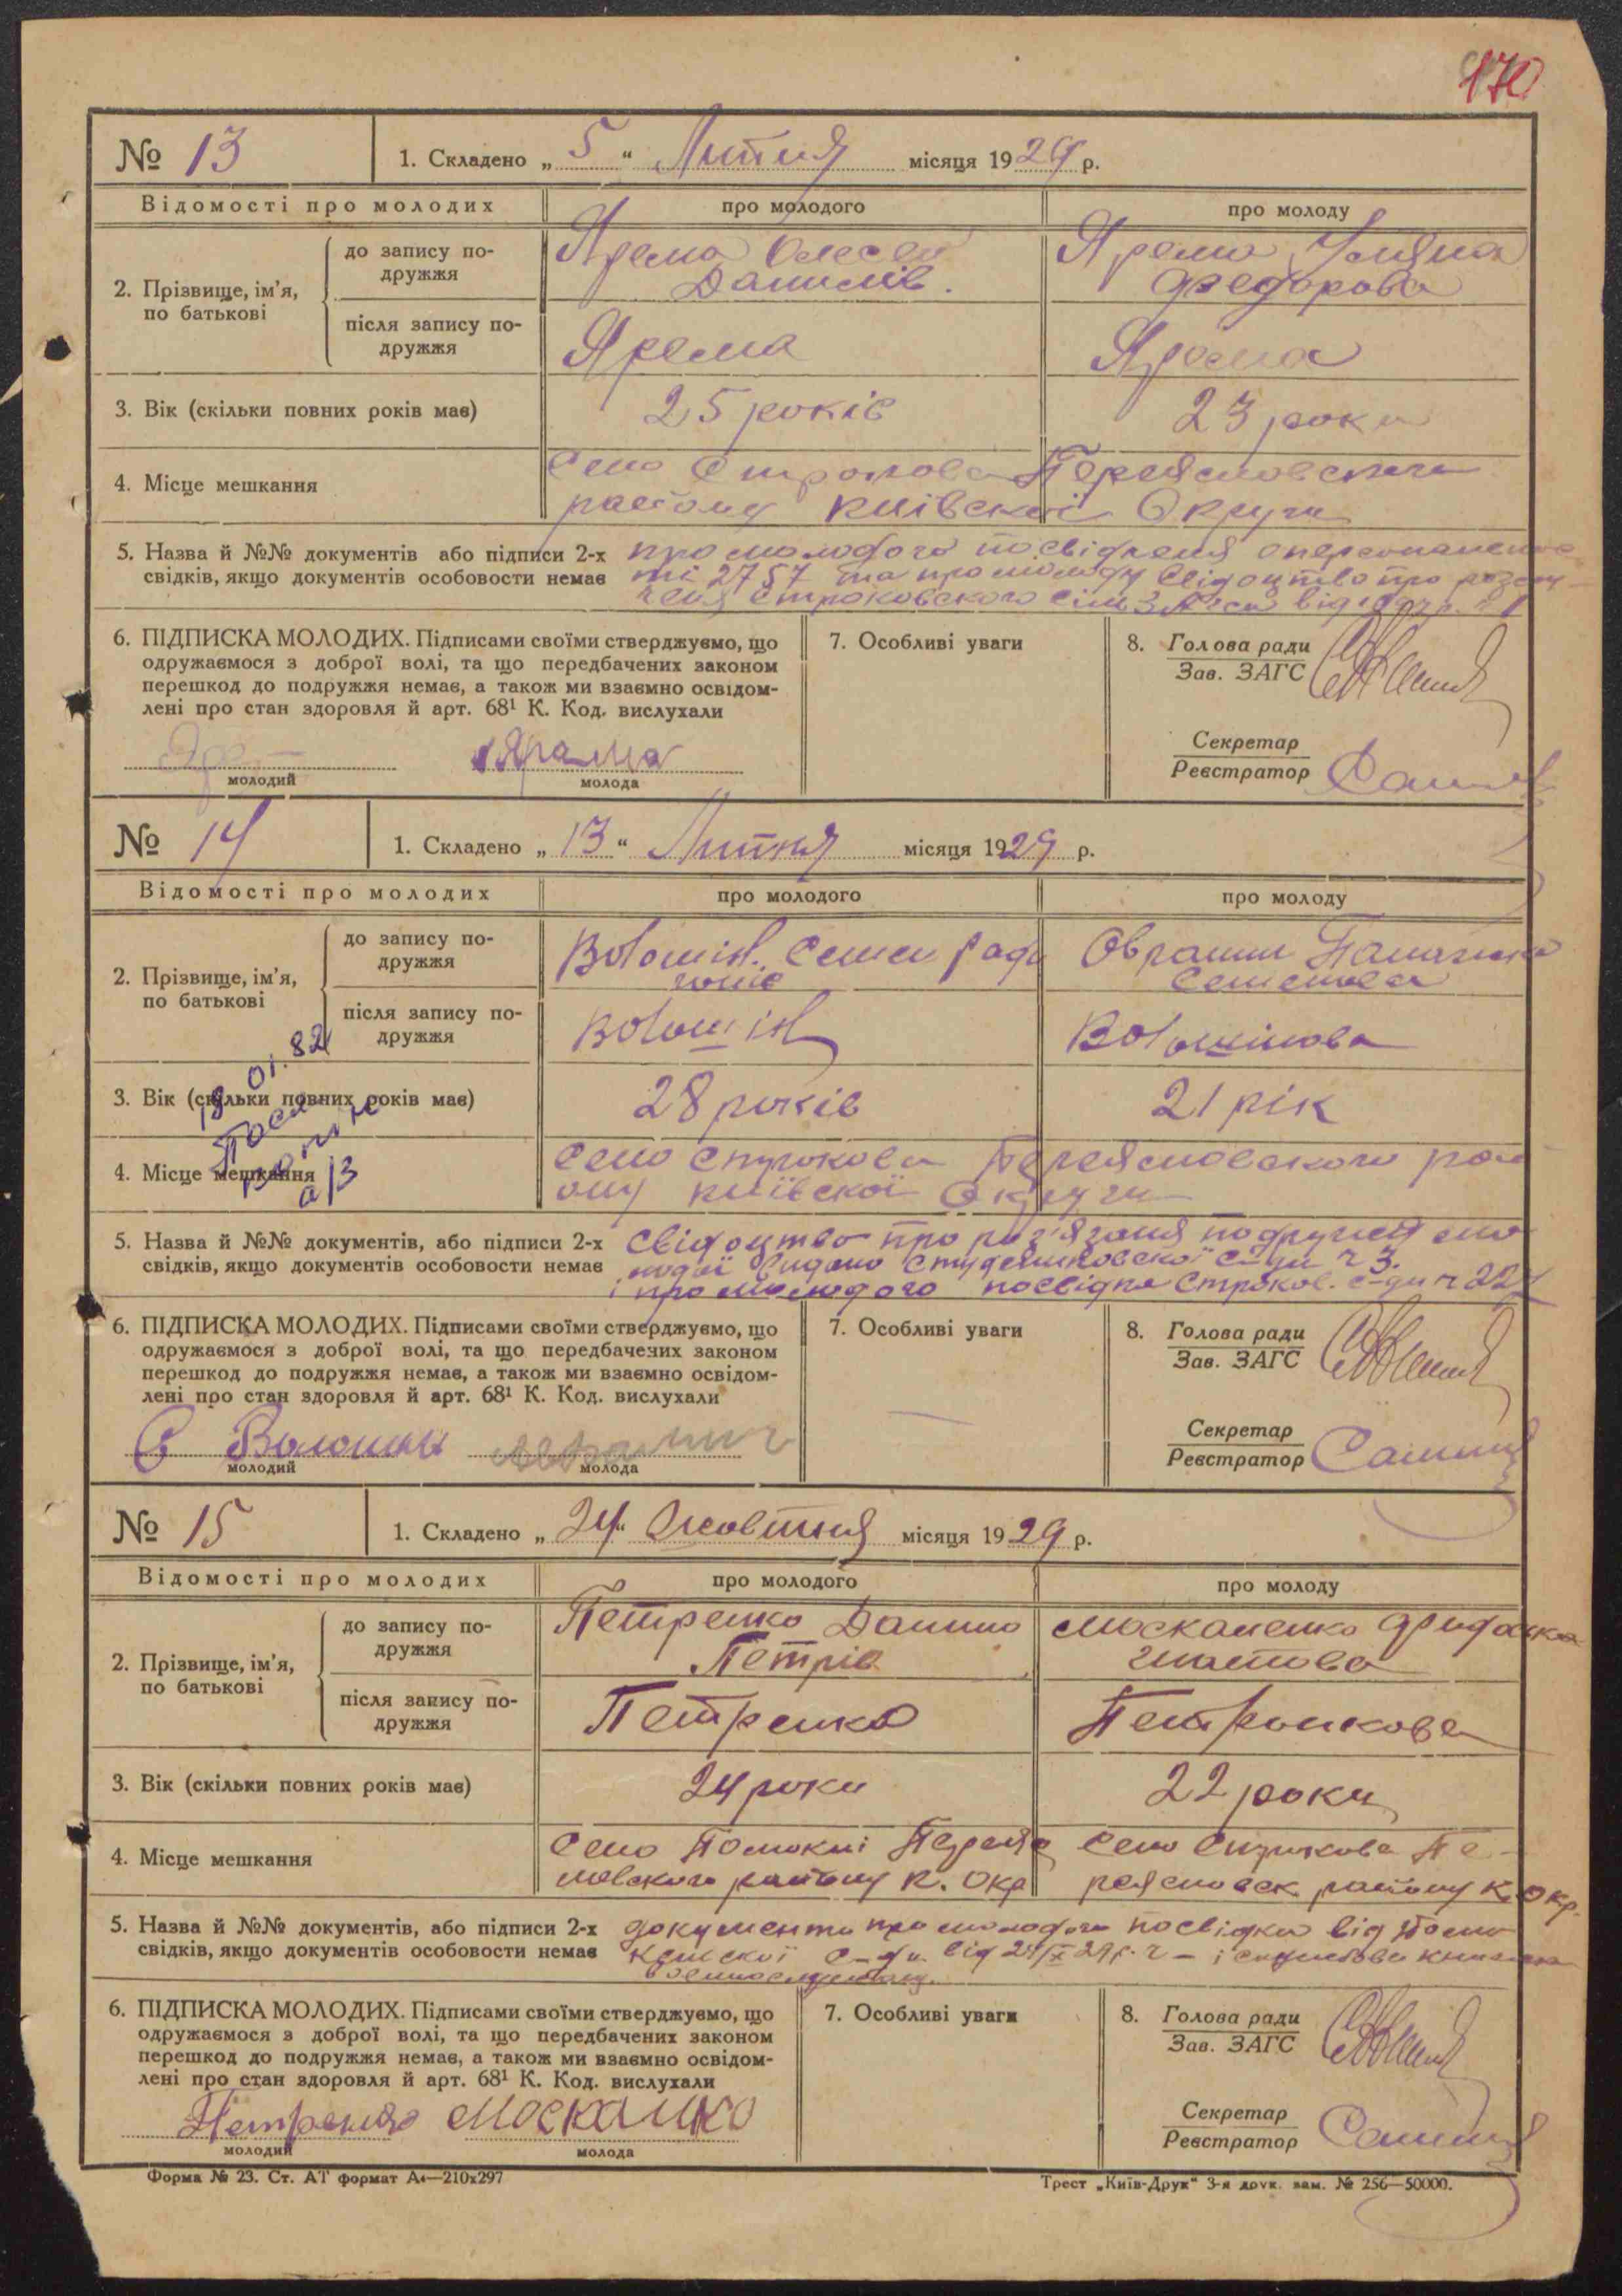 170
№ 13
1. Складено „ 5 “ Липня місяця 1929 р.
Відомості про молодих
про молодого
про молоду
2. Прізвище, ім’я, по батькові
до запису подружжя
Ярема Олесей
Данилів.
Ярема Уляна
Федорова
після запису подружжя
Ярема
Ярема
3. Вік (скільки повних років має)
25 років
23 роки
4. Місце мешкання
Село Строкова Переясловського
району Київської Округи
5. Назва й №№ документів або підписи 2-х
свідків, якщо документів особовости немає
про молодого посвідчення
ті 2757 та про молоду свідоцтво про
Строковского
6. ПІДПИСКА МОЛОДИХ. Підписами своїми стверджуємо, що
одружаємося з доброї волі, та що передбачених законом
перешкод до подружжя немає, а також ми взаємно освідом-
лені про стан здоровля й арт. 68¹ К. Код. вислухали
молодий
Ярама
молода
7. Особливі уваги
8. Голова ради
Зав. ЗАГС
Секретар
Реєстратор
№ 14
1. Складено „ 13 “ Липня місяця 1929 р.
Відомості про молодих
про молодого
про молоду
2. Прізвище, ім’я, по батькові
до запису подружжя
Волошін. Семен Ради
оніє
Оврашш
Семенова
після запису подружжя
Волошін
Волошінова
3. Вік (скільки повних років має)
28 років
21 рік
01.82
4. Місце мешкання
а/з
Село Строкова Переясловского рай
ону київскої Округи
5. Назва й №№ документів, або підписи 2-х
свідків, якщо документів особовости немає
Свідоцтво про розвязаня подружжя мо
лодої видано Студениковскої с-ди ч 3.
і про молодого посвідка Строков. с-ди ч 221
6. ПІДПИСКА МОЛОДИХ. Підписами своїми стверджуємо, що
одружаємося з доброї волі, та що передбачених законом
перешкод до подружжя немає, а також ми взаємно освідом-
лені про стан здоровля й арт. 68¹ К. Код. вислухали
С Волошин
молодий
молода
7. Особливі уваги
8. Голова ради
Зав. ЗАГС
Секретар
Реєстратор
№ 15
1. Складено „ 24 “ Жовтня місяця 1929 р.
Відомості про молодих
про молодого
про молоду
2. Прізвище, ім’я, по батькові
до запису подружжя
Петренко Данило
Петрів
Москаленко
Гнатова
після запису подружжя
Петренко
Петренкова
3. Вік (скільки повних років має)
24 роки
22 роки
4. Місце мешкання
Село Помокні Переяс
ловского району К. Окр
Село Строкова Пе-
реясловск району К. Окр.
5. Назва й №№ документів, або підписи 2-х
свідків, якщо документів особовости немає
документи про молодого посвідка від Помо
кенскої с-ди від 24/X 29р. ч – і службова книжка
6. ПІДПИСКА МОЛОДИХ. Підписами своїми стверджуємо, що
одружаємося з доброї волі, та що передбачених законом
перешкод до подружжя немає, а також ми взаємно освідом-
лені про стан здоровля й арт. 68¹ К. Код. вислухали
Петренко
молодий
Москалико
молода
7. Особливі уваги
8. Голова ради
Зав. ЗАГС
Секретар
Реєстратор
Форма № 23. Ст. АТ формат А₄—210х297
Трест „Київ-Друк“ 3-я друк. зам. № 256—50000.